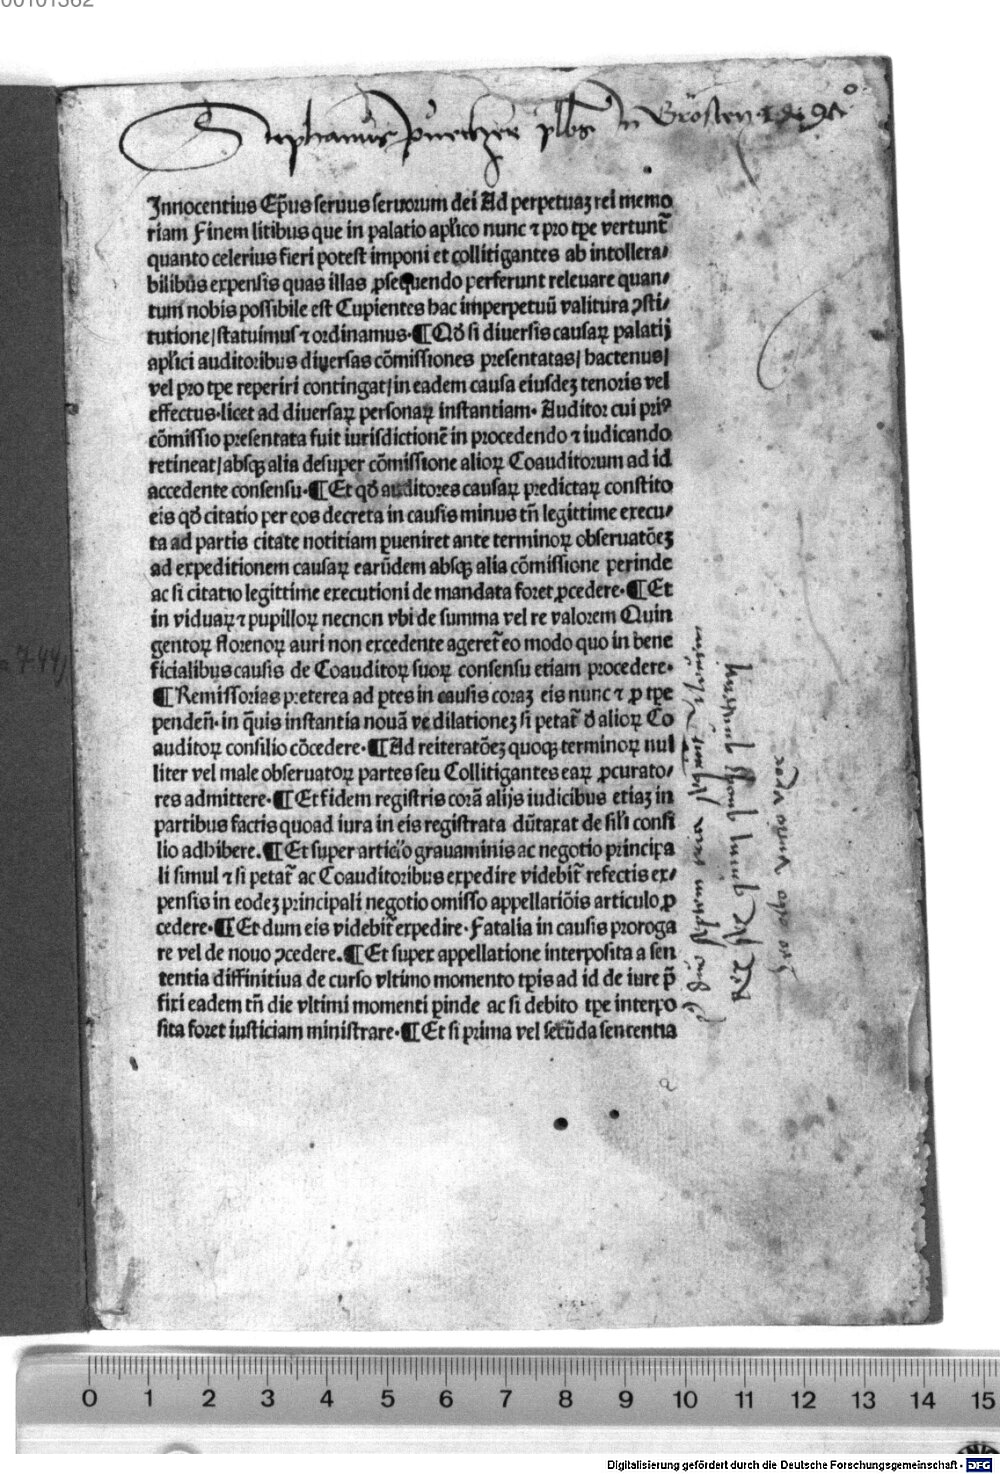 00101362
Stephanus plbs in Grösten 149
Innocentius Ep̃us seruus seruorum dei Ad perpetuaꝫ rei memo
riam Finem litibus que in palatio apl̃ico nunc ⁊ pro tꝑe vertunt᷑
quanto celerius fieri potest imponi et collitigantes ab intollera/
bilibus expensis quas illas ꝓsequendo perferunt releuare quan/
tum nobis possibile est Cupientes hac imperpetuū valitura ꝯsti/
tutione/statuimus ⁊ ordinamus·¶Qđ si diuersis causaꝝ palatij
apl̃ici auditoribus diuersas cōmissiones presentatas/ hactenus/
vel pro tꝑe reperiri contingat/in eadem causa eiusdeꝫ tenoris vel
effectus·licet ad diuersaꝝ personaꝝ instantiam· Auditor cui priꝰ
cōmissio presentata fuit iurisdictionē in procedendo ⁊ iudicando
retineat/absqꝫ alia desuper cōmissione alioꝝ Coauditorum ad id
accedente consensu·¶Et qđ auditores causaꝝ predictaꝝ constito
eis qđ citatio per eos decreta in causis minus tñ legittime execu/
ta ad partis citate notitiam ꝑueniret ante terminoꝝ obseruatōeꝫ
ad expeditionem causaꝝ earūdem absqꝫ alia cōmissione perinde
ac si citatio legittime executioni de mandata foret ꝓcedere·¶Et
in viduaꝝ ⁊ pupilloꝝ necnon vbi de summa vel re valorem Quin
gentoꝝ florenoꝝ auri non excedente ageret᷑ eo modo quo in bene
ficialibus causis de Coauditoꝝ suoꝝ consensu etiam procedere·
¶Remissorias preterea ad ptes in causis coraꝫ eis nunc ⁊ ꝓ tꝑe
pendeñ· in q̄uis instantia nouā ve dilationeꝫ si petat᷑ đ alioꝝ Co
auditoꝝ consilio cōcedere·¶Ad reiteratōeꝫ quoqꝫ terminoꝝ nul
liter vel male obseruatoꝝ partes seu Collitigantes eaꝝ ꝓcurato/
res admittere·¶Et fidem registris corā alijs iudicibus etiaꝫ in
partibus factis quoad iura in eis registrata dūtaxat de sil̃i consi
lio adhibere.¶Et super articulo grauaminis ac negotio principa
li simul ⁊ si petat᷑ ac Coauditoribus expedire videbit᷑ refectis ex/
pensis in eodeꝫ principali negotio omisso appellatiōis articulo ꝓ
cedere·¶Et dum eis videbit᷑ expedire·Fatalia in causis proroga
re vel de nouo ꝯcedere.¶Et super appellatione interposita a sen
tentia diffinitiua de curso vltimo momento tꝑis ad id de iure p̄
fixi eadem tñ die vltimi momenti ꝑinde ac si debito tꝑe interpo
sita foret iusticiam ministrare·¶Et si prima vel secūda sentencia
0 1 2 3 4 5 6 7 8 9 10 11 12 13 14 15
Digitalisierung gefördert durch die Deutsche Forschungsgemeinschaft - DFG